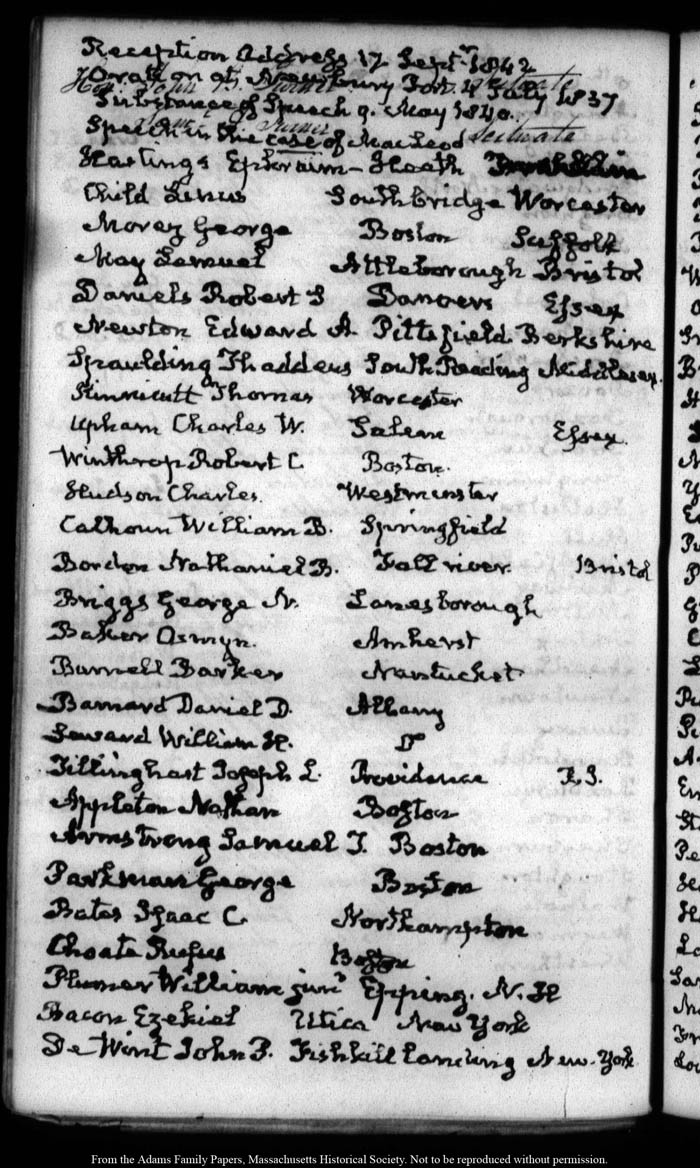 Reception Address 17 Septr 1842
Hon. John B. Turner Scituate
Oration at Newbury Port 4 July 1837
Substance of Speech 9. May 1840.
Turner Scituate
Speech in the case of MacLeod
Hastings Ephraim - Heath Franklin
Child Linus Southbridge Worcester
Morey George Boston Suffolk
May Samuel Attleborough Bristol
Daniels Robert S Danvers Essex
Newton Edward A. Pittsfield Berkshire
Spaulding Thaddeus South Reading Middlesex.
Kinnicutt Thomas Worcester
Upham Charles W. Salem Essex.
Winthrop Robert C Boston.
Hudson Charles. Westminster
Calhoun William B. Springfield
Borden Nathaniel B. Fall river. Bristol
Briggs George N. Lanesborough
Baker Osmyn. Amherst
Burnell Barker Nantucket
Barnard Daniel D. Albany
Seward William H. Do
Tillinghast Joseph L. Providence R.I.
Appleton Nathan Boston
Armstrong Samuel T. Boston
Parkman George Boston
Bates Isaac C. Northampton
Choate Rufus Boston
Plumer William junr Epping. N.H
Bacon Ezekiel Utica New York
De Wint John P. Fishkill Landing New-York
From the Adams Family Papers, Massachusetts Historical Society. Not to be reproduced without permission.